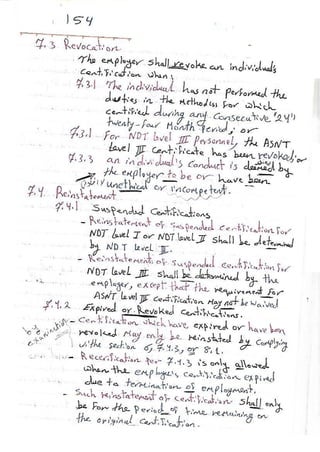 154
7.3 Revocation
The employer shall revoke an individual's
Certification when:
7.3.1 The individual has not performed the
duties in the Methodes for which
certified during any Consecutive "24"
twenty-four Month Period; or
7.3.1 - For NDT Level III Personnel, the ASNT
Level III Certificate has been revoked; or
7.3.3 an individual's conduct is deemed by
the employer to be or have been
unethical or incompetent.
7.4. Reinstatement
7.4.1 Suspended Certifications
- Reinstatement of suspended certification for
NDT Level I or NDT level II shall be determined
by NDT level III.
- Reinstatement of suspended certification for
NDT Level III shall be determined by the
employer, except that the requirement for
ASNT level III certification may not be waived
7.4.2 Expired or Revoked Certifications.
- Certification which have expired or have been
revoked may only be reinstated by complying
with section 6, 7.4.3, or 8.1.
- Recertification per 7.4.3 is only allowed
when the employee's certification expired
due to termination of employment.
- Such reinstatement of certification shall only
be for the period of time remaining on
the original Certification.